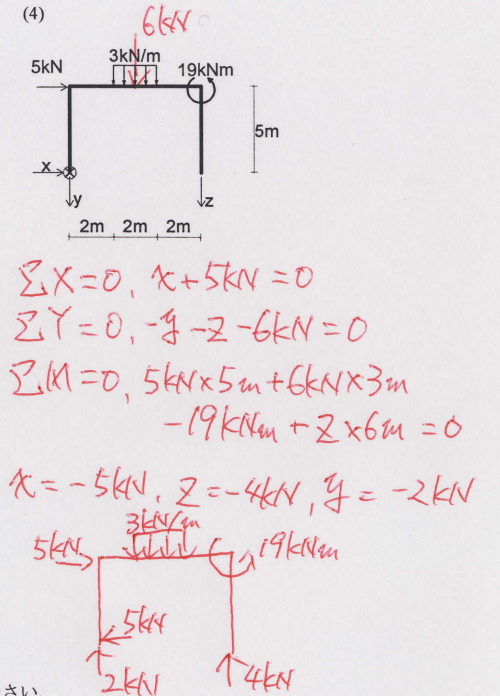 (4)
6kN
3kN/m
5kN
19kNm
5m
x
y
z
2m 2m 2m
ΣX=0, x+5kN=0
ΣY=0, -y-z-6kN=0
ΣM=0, 5kN×5m+6kN×3m
-19kNm+z×6m=0
x=-5kN, z=-4kN, y=-2kN
3kN/m
5kN
19kNm
5kN
2kN
4kN
さい